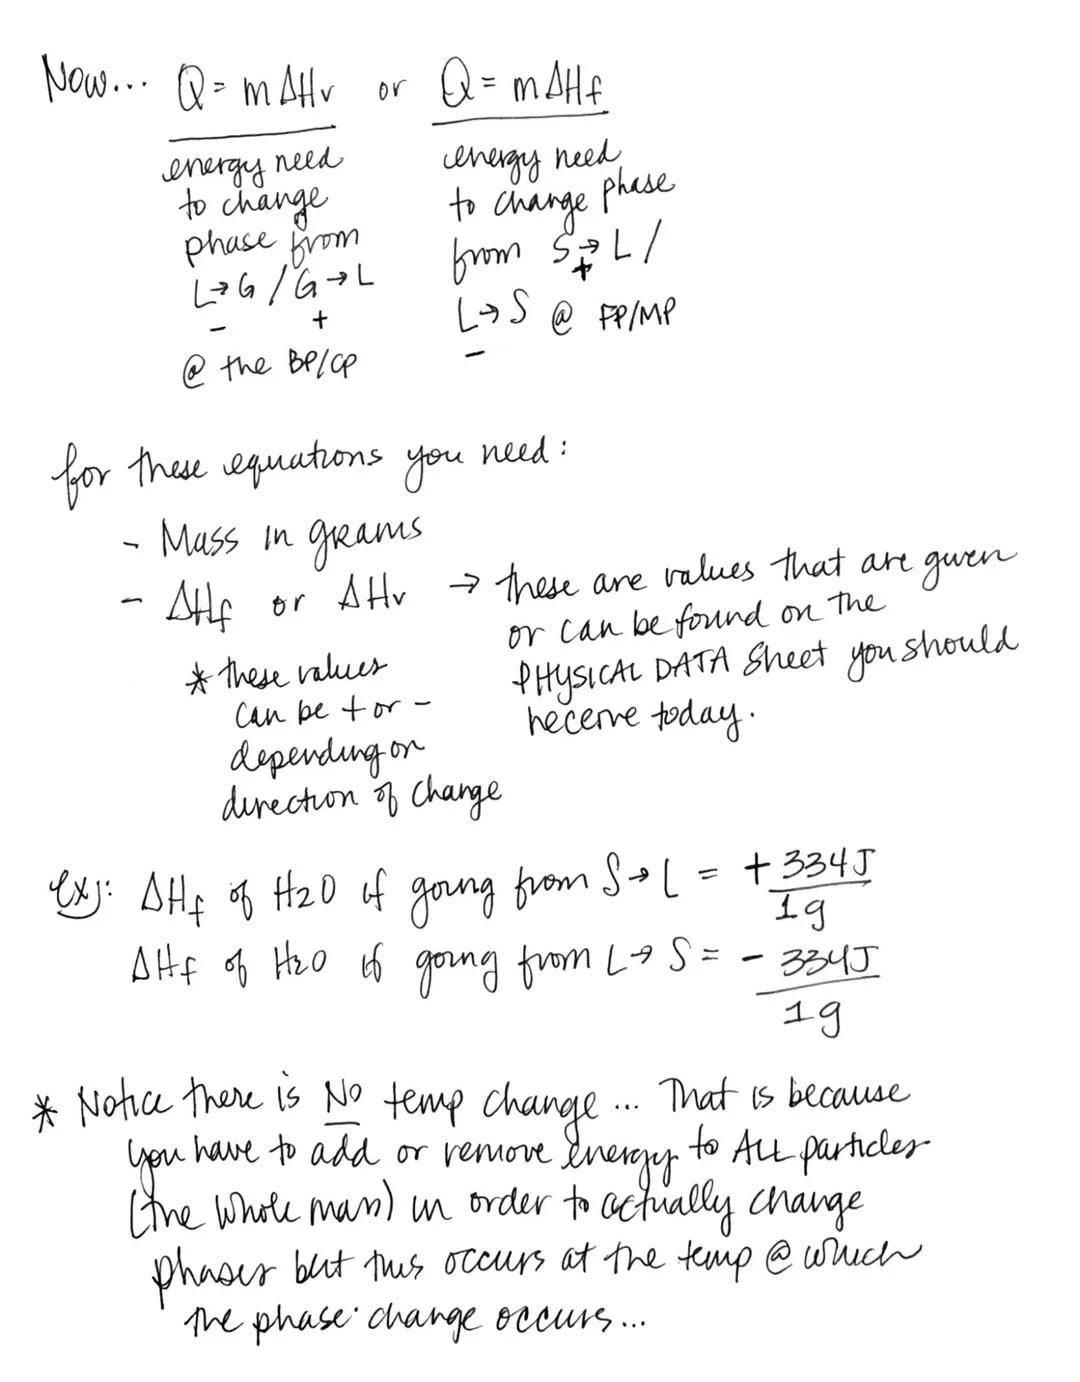 Now... Q = m ΔHv or Q = mΔHf
energy need
to change
phase from
L→G / G→L
- +
@ the BP/CP
energy need
to change phase
from S→L /
+
L→S @ FP/MP
-
for these equations you need:
- Mass in grams
- ΔHf or ΔHv → these are values that are given
or can be found on the
PHYSICAL DATA Sheet you should
receive today.
* these values
can be + or -
depending on
direction of change
Ex): ΔHf of H2O if going from S→L = + 334J
1g
ΔHf of H2O if going from L→S = - 334J
1g
* Notice there is NO temp change... That is because
you have to add or remove energy to ALL particles
(the whole mass) in order to actually change
phases but this occurs at the temp @ which
the phase change occurs...